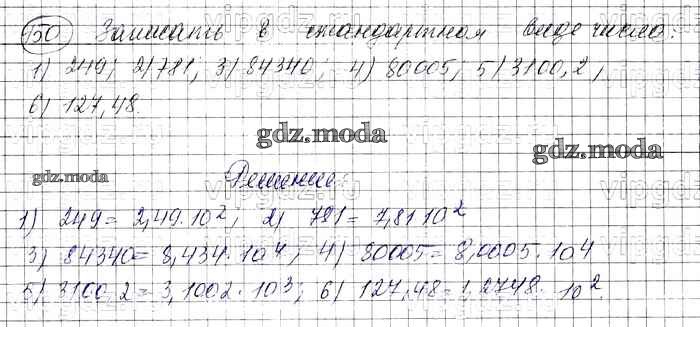 150 Записать в стандартном виде число:
1) 249; 2) 781; 3) 84340; 4) 80005; 5) 3100,2;
6) 127,48.
gdz.moda
gdz.moda
gdz.moda
Решение:
1) 249 = 2,49·10²; 2) 781 = 7,81·10²
3) 84340 = 8,434·10⁴; 4) 80005 = 8,0005·10⁴
5) 3100,2 = 3,1002·10³; 6) 127,48 = 1,2748·10²